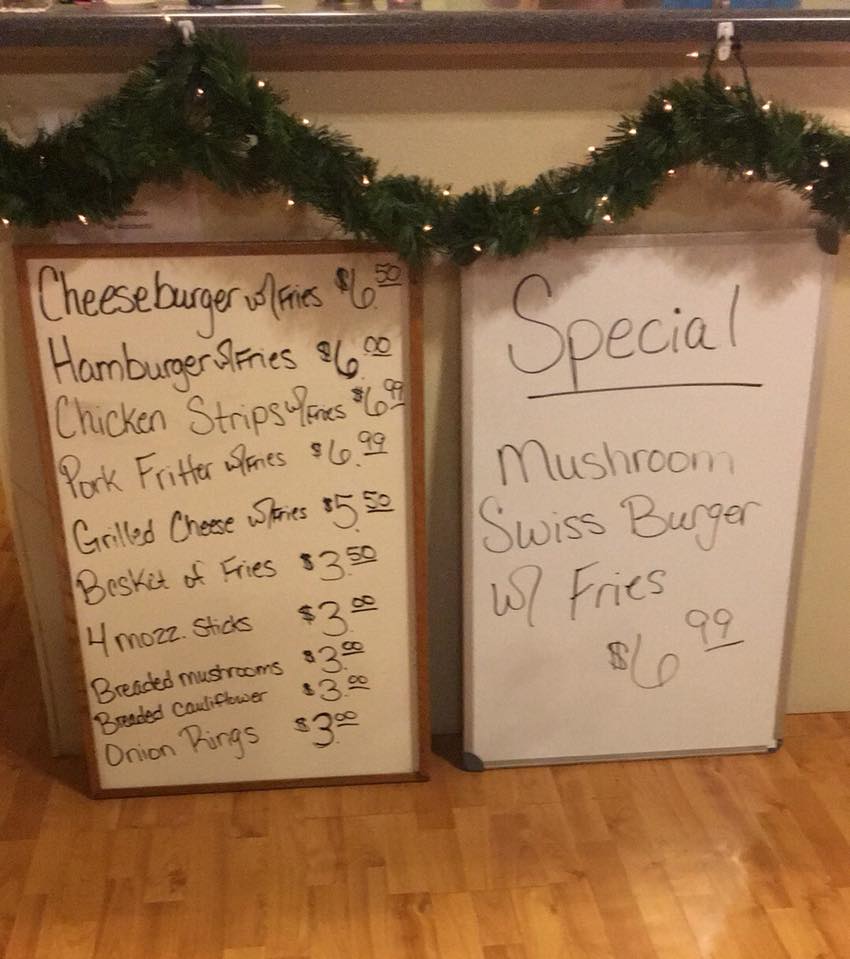 Cheeseburger w/ Fries $6.50
Hamburger w/ Fries $6.00
Chicken Strips w/ Fries $6.99
Pork Fritter w/ Fries $6.99
Grilled Cheese w/ Fries $5.50
Basket of Fries $3.50
4 mozz. sticks $3.00
Breaded mushrooms $3.00
Breaded cauliflower $3.00
Onion Rings $3.00
Special
Mushroom
Swiss Burger
w/ Fries
$6.99